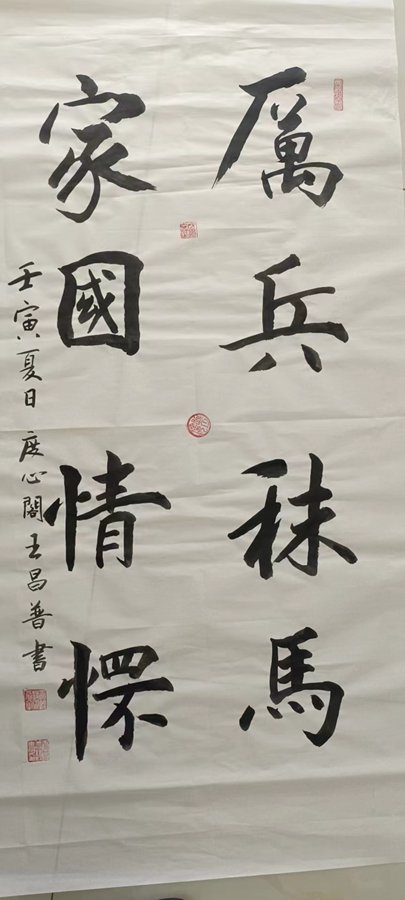 厲兵秣馬
家國情懷
壬寅夏日 度心閣王昌普書